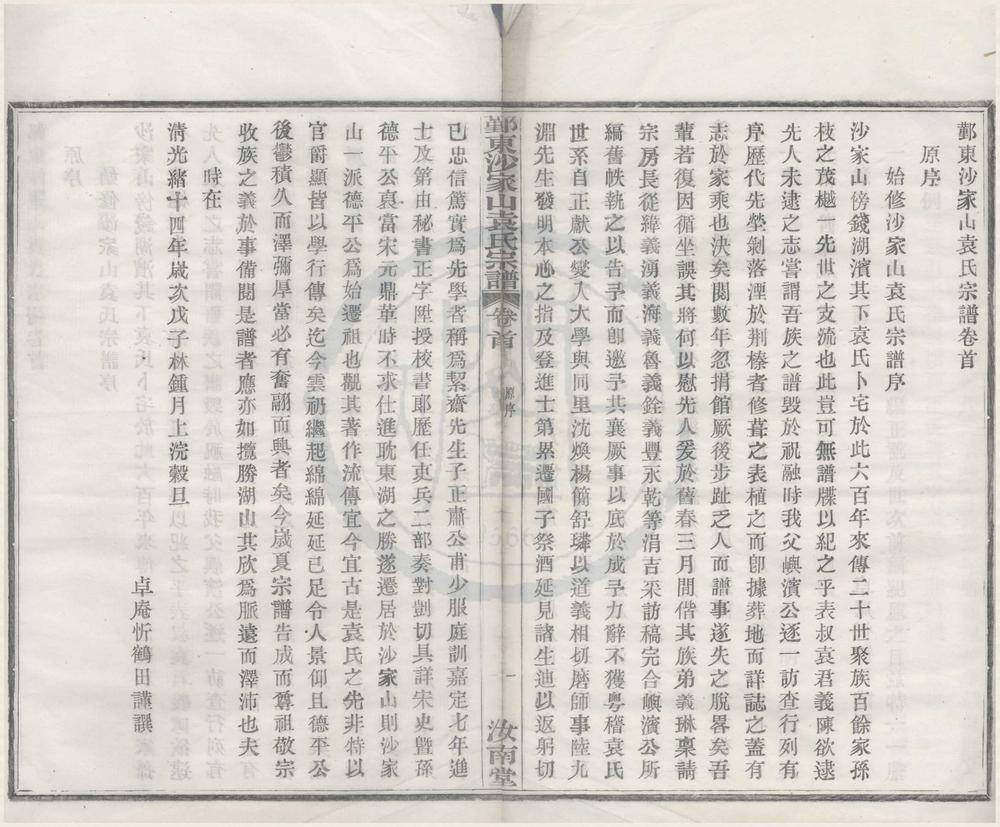 鄞東沙家山袁氏宗譜卷首
原序
始修沙家山袁氏宗譜序
沙家山傍錢湖濱其下袁氏卜宅於此六百年來傳二十世聚族百餘家孫
枝之茂樾一先世之支流也此豈可無譜牒以紀之乎表叔袁君義陳欲逮
先人未逮之志嘗謂吾族之譜毀於祝融時我父嶼濱公逐一訪查行列有
序歷代先塋剝落湮於荆榛者修葺之表植之而卽據葬地而詳誌之蓋有
志於家乘也決矣閱數年忽捐館厥後步趾乏人而譜事遂失之脫畧矣吾
輩若復因循坐誤其將何以慰先人爰於舊春三月間偕其族弟義琳稟請
宗房長從緯義湧義海義魯義銓義豐永乾等涓吉采訪稿完合嶼濱公所
編舊帙執之以告予而卽邀予共襄厥事以底於成予力辭不獲粵稽袁氏
世系自正獻公燮入大學與同里沈煥楊簡舒璘以道義相切磨師事陸九
淵先生發明本心之指及登進士第累遷國子祭酒延見諸生迪以返躬切
鄞東沙家山袁氏宗譜 卷首 原序 一 汝南堂
己忠信篤實爲先學者稱爲絜齋先生子正肅公甫少服庭訓嘉定七年進
士及第由秘書正字陞授校書郎歷任吏兵二部奏對剴切具詳宋史曁孫
德平公裒當宋元鼎革時不求仕進耽東湖之勝遂遷居於沙家山則沙家
山一派德平公爲始遷祖也觀其著作流傳宜今宜古是袁氏之先非特以
官爵顯皆以學行傳矣迄今雲礽繼起綿綿延延已足令人景仰且德平公
後鬱積久而澤彌厚當必有奮翮而興者矣今歲夏宗譜告成而尊祖敬宗
收族之義於事備閱是譜者應亦如攬勝湖山共欣爲脈遠而澤沛也夫
時在
清光緒十四年歲次戊子林鍾月上浣穀旦
卓庵忻鶴田謹譔